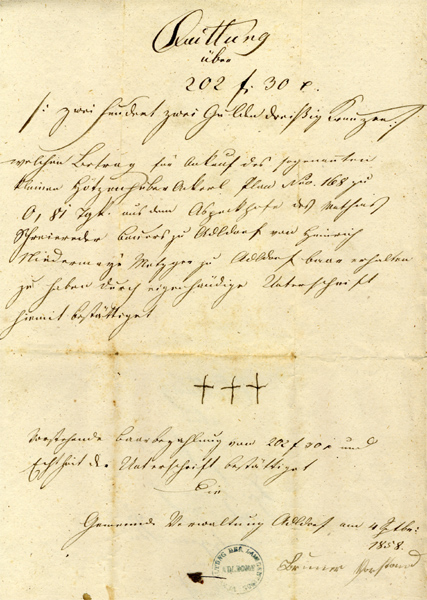 Quittung
über
202 f. 30 x.
/: zwei hundert zwei Gulden dreißig Kreuzer :/
welchen Betrag für Ankauf des sogenannten
kleinen Ackerl Plan Nro. 168 zu
0,81 Tgk. aus dem des Mathias
Bauers zu Adldorf von Heinrich
Metzger zu Adldorf baar erhalten
zu haben durch eigenhändige Unterschrift
hiemit bestättiget
+++
Vorstehende Baarbezahlung von 202 f 30 x und
Echtheit der Unterschrift bestättiget
Die
Gemeinde Verwaltung Adldorf am 4 Sptbr:
1858.
Vorstand